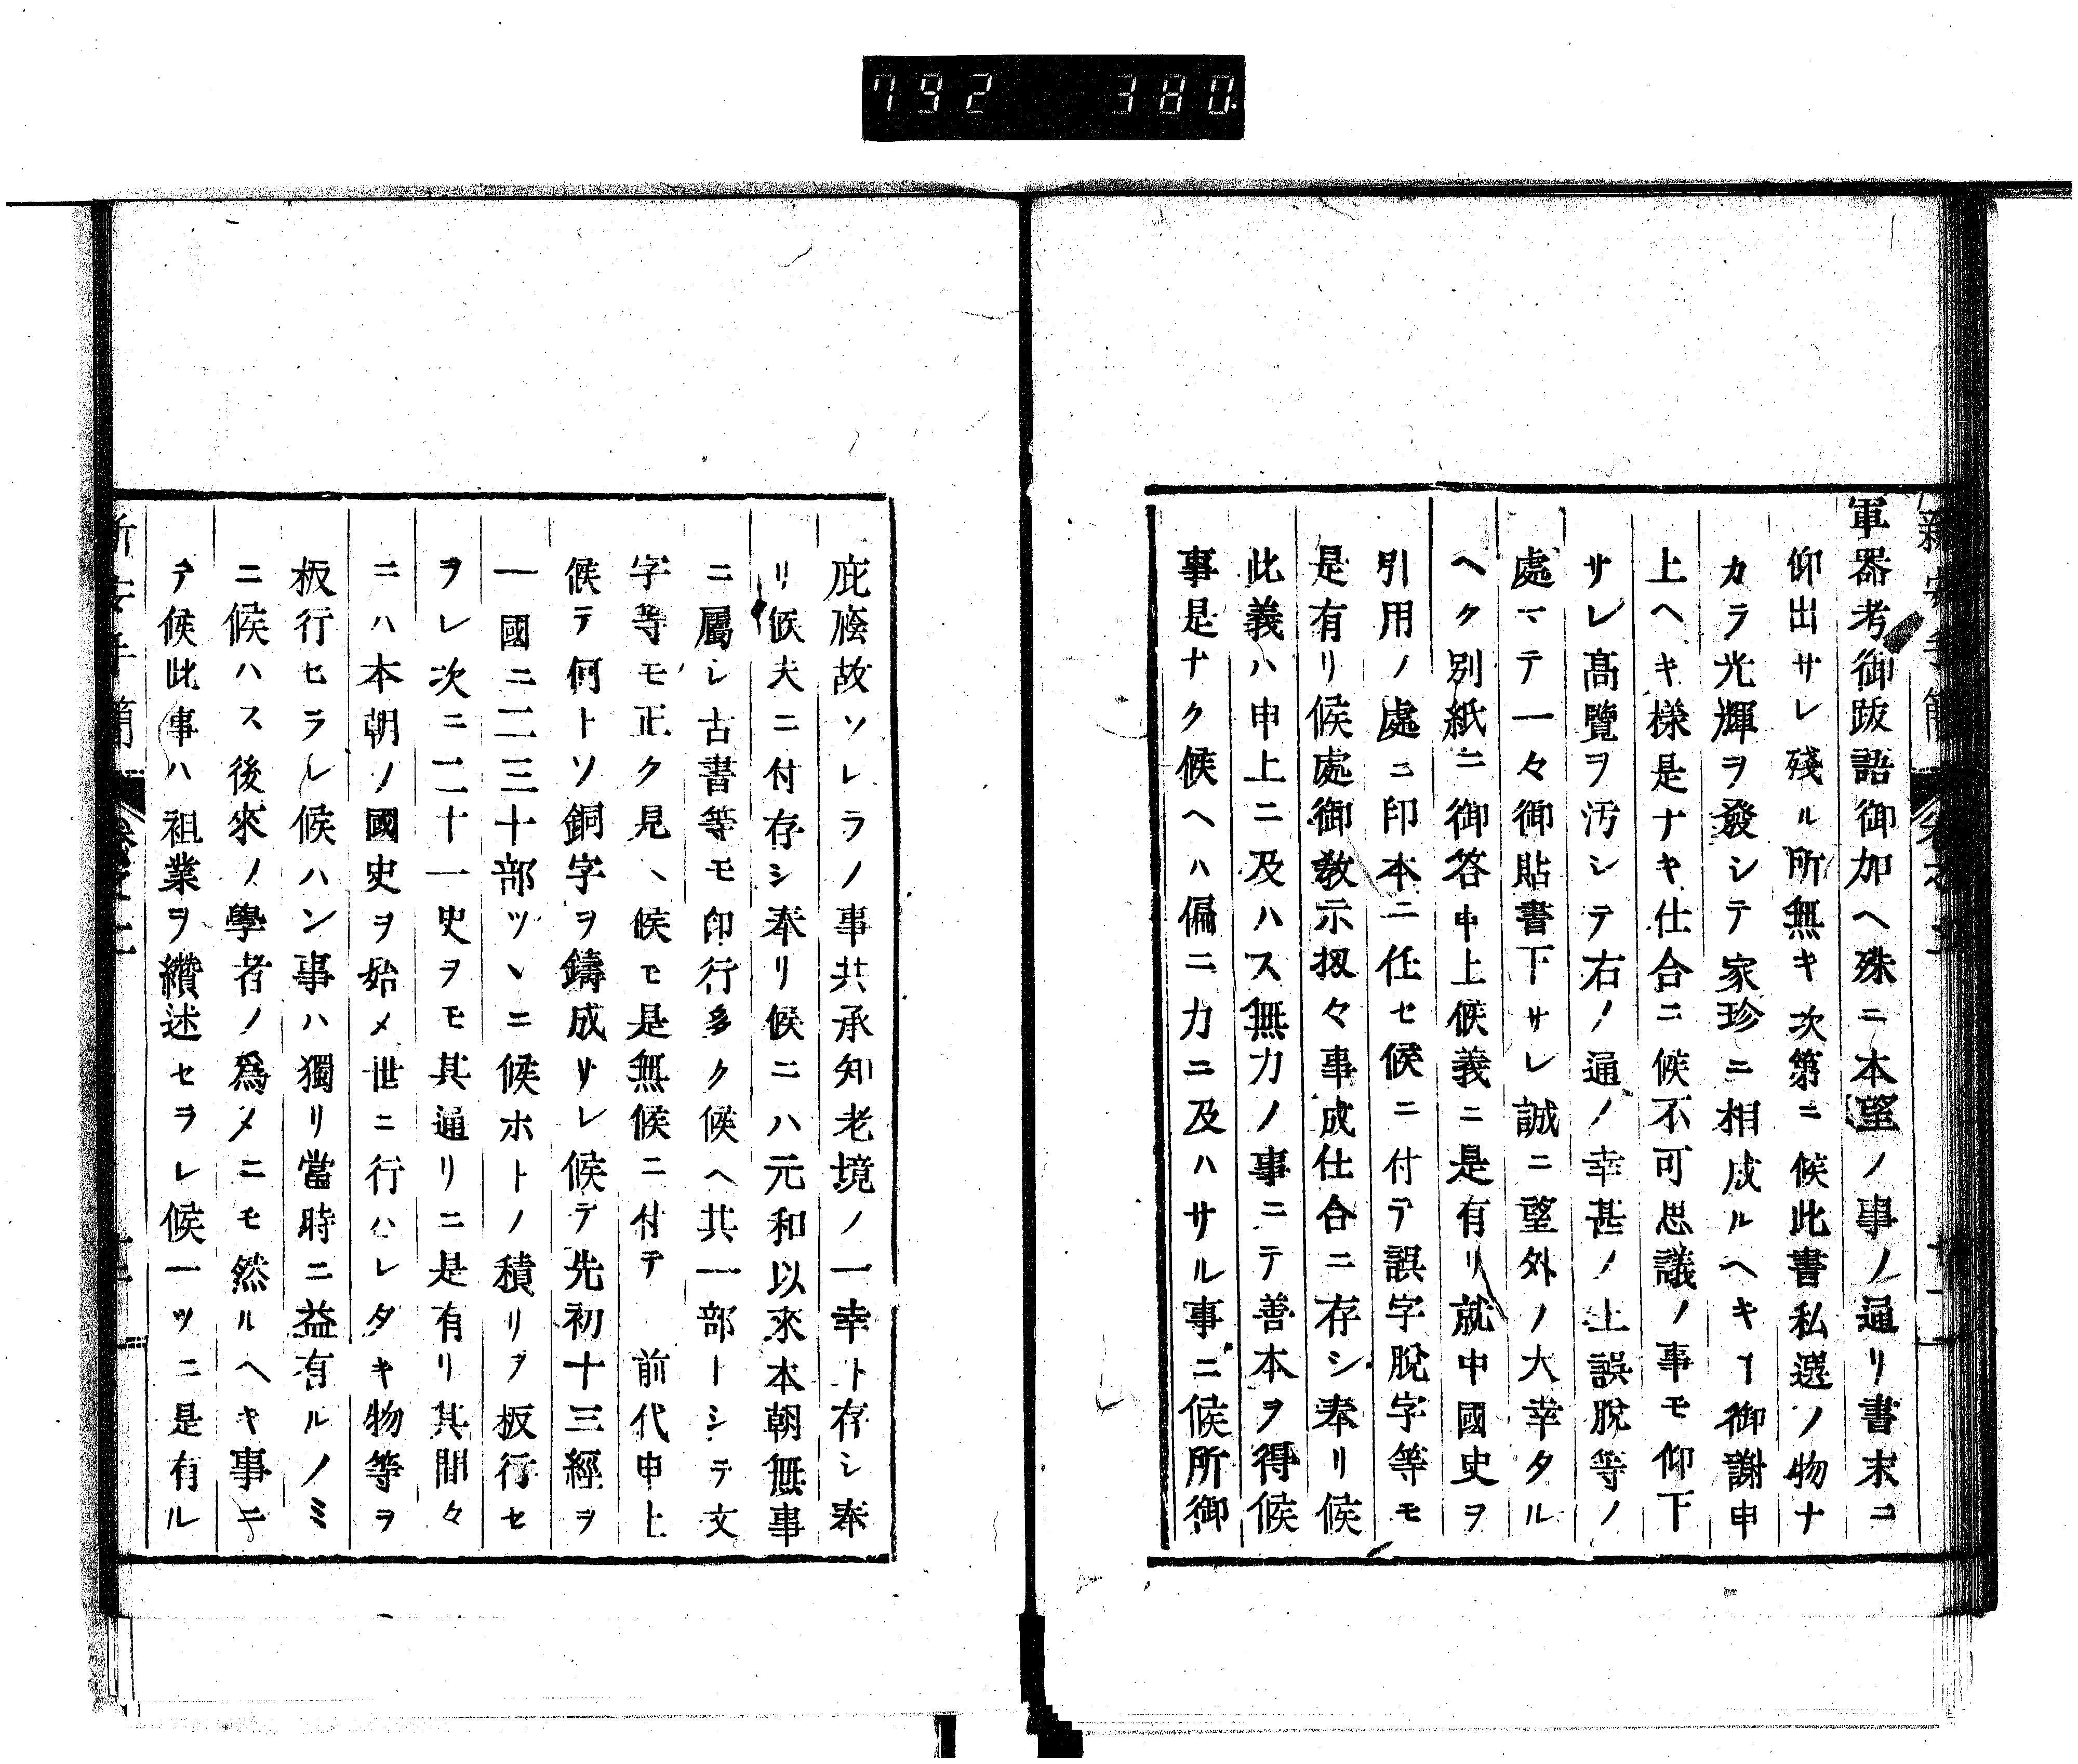 792 380
軍器考御跋語御加ヘ殊ニ本望ノ事ノ通リ書末コ
仰出サレ殘ル所無キ次第ニ候此書私選ノ物ナ
カラ光輝ヲ發シテ家珍ニ相成ルヘキヿ御謝申
上ヘキ様是ナキ仕合ニ候不可思議ノ事モ仰下
サレ髙覽ヲ汚シテ右ノ通ノ幸甚ノ上誤脫等ノ
處マテ一々御貼書下サレ誠ニ望外ノ大幸タル
ヘク別紙ニ御答申上候義ニ是有リ就中國史ヲ
引用ノ處ニ印本ニ任セ候ニ付テ誤字脫字等モ
是有リ候處御敎示扨々事成仕合ニ存シ奉リ候
此義ハ申上ニ及ハス無力ノ事ニテ善本ヲ得候
事是ナク候ヘハ偏ニ力ニ及ハサル事ニ候所御
庇廕故ソレラノ事共承知老境ノ一幸ト存シ奉
リ候夫ニ付存シ奉リ候ニハ元和以來本朝無事
ニ屬シ古書等モ印行多ク候ヘ共一部トシテ文
字等モ正ク見ヘ候モ是無候ニ付テ 前代申上
候テ何トソ銅字ヲ鑄成サレ候テ先初十三經ヲ
一國ニ二三十部ツヽニ候ホトノ積リヲ板行セ
ヲレ次ニ二十一史ヲモ其通リニ是有リ其間々
ニハ本朝ノ國史ヲ始メ世ニ行ハレタキ物等ヲ
板行セラレ候ハン事ハ獨リ當時ニ益有ルノミ
ニ候ハス後來ノ學者ノ爲メニモ然ルヘキ事ニ
テ候此事ハ祖業ヲ纘述セラレ候一ツニ是有ル
新安手簡